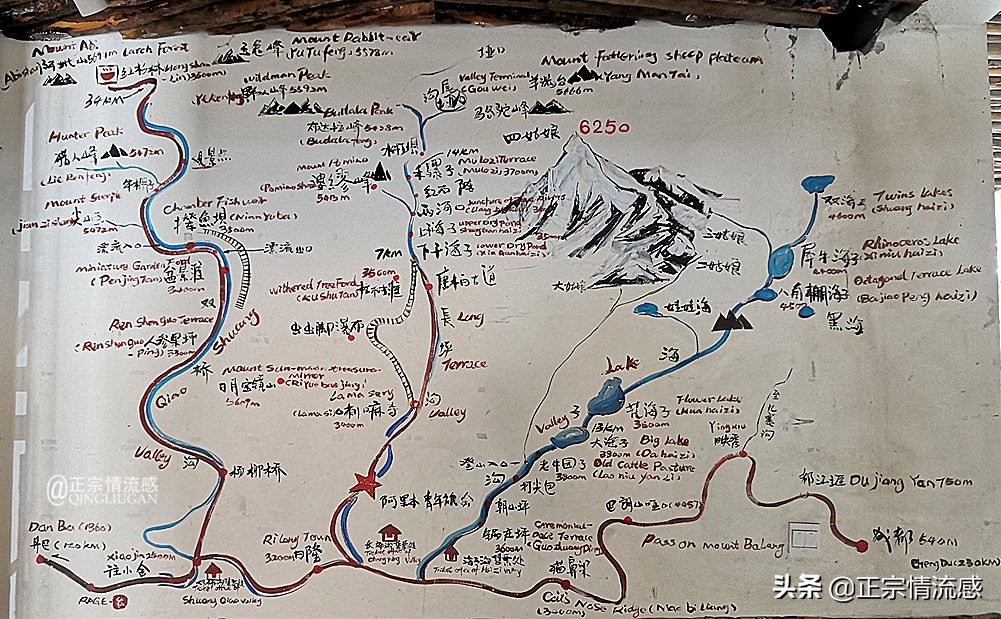 Mount Abi
Larch Forest
红杉林
玉兔峰
Mount Rabbit-ear
Yu Tu feng, 5578m
垭口
Mount Fattening sheep plateam
Yang Man Tai
5666m
Valley Terminal
(Gou Wei)
沟尾
骆驼峰
34KM
Wildman Peak
野人峰 5592m
Budala Peak
布达拉峰 5428m
(Budala feng)
木骡子
14KM
Muluzi Terrace
Muluzi, 3700m
红石阵
四姑娘
6250
三姑娘
二姑娘
大姑娘
Hunter Peak
猎人峰 5472m
(Lie Ren feng)
牛棚子
观景点
Mount Pomiao
婆缪峰
5413m
两河口
上干海子
upper Dry Pond
下干海子
Lower Dry Pond
(Xia Gan haizi)
7KM
Mount Sanjie
尖山子
5472m
漂流入口
漂流出口
Chamber Fish weir
撵鱼坝
(Nian Yu ba)
3300m
Miniature Garden Ford
(Pen Jing Tan)
盆景滩
withered Tree Ford
3560m
(Ku Shu Tan)
枯树滩
唐柏古道
虫虫脚瀑布
长
Long
坪
Terrace
沟
Valley
Ren Shen guo Terrace
(Renshenguo ping)
人参果坪
双
Shuang
桥
Qiao
沟
Valley
Mount Sun-moon treasure-mirror
日月宝镜山
(Ri Yue bao jing)
5609m
Lama sery
(Lama si)
喇嘛寺
3400m
双海子
4600m
Twins Lakes
(Shuang haizi)
犀牛海子
Rhinoceros Lake
Xi niu haizi
Octagonal Terrace Lake
八角棚海子
(Bajiao Peng haizi)
黑海
娃娃海
海
Lake
子
Valley
沟
13KM
花海子
3600m
Flower Lake
(Hua haizi)
大海子
3800m
Big Lake
(Da haizi)
老牛园子
Old Cattle Pasture
(Lao niu yan zi)
登山入口
打尖包
朝山坪
锅庄坪
3600m
Ceremonial-Dance Terrace
(Guo Zhuang Ping)
猫鼻梁
Cat's Nose Ridge (Mao bi liang)
(3400m)
杨柳桥
阿里本青年旅舍
Ri Long Town
3200m 日隆
Ticket office of Haizi valley
Shuang Qiao valley
Dan Ba (1860)
丹巴 (120KM)
xiao jin 2500m
往小金
PAGE:
巴朗山口 (4457)
Pass on mount Balang
Yingxiu
映秀
至九寨沟
都江堰 Du Jiang Yan 750m
成都 540m
Cheng Du (230KM)
@正宗情流感
QINGLIUGAN
头条 @正宗情流感